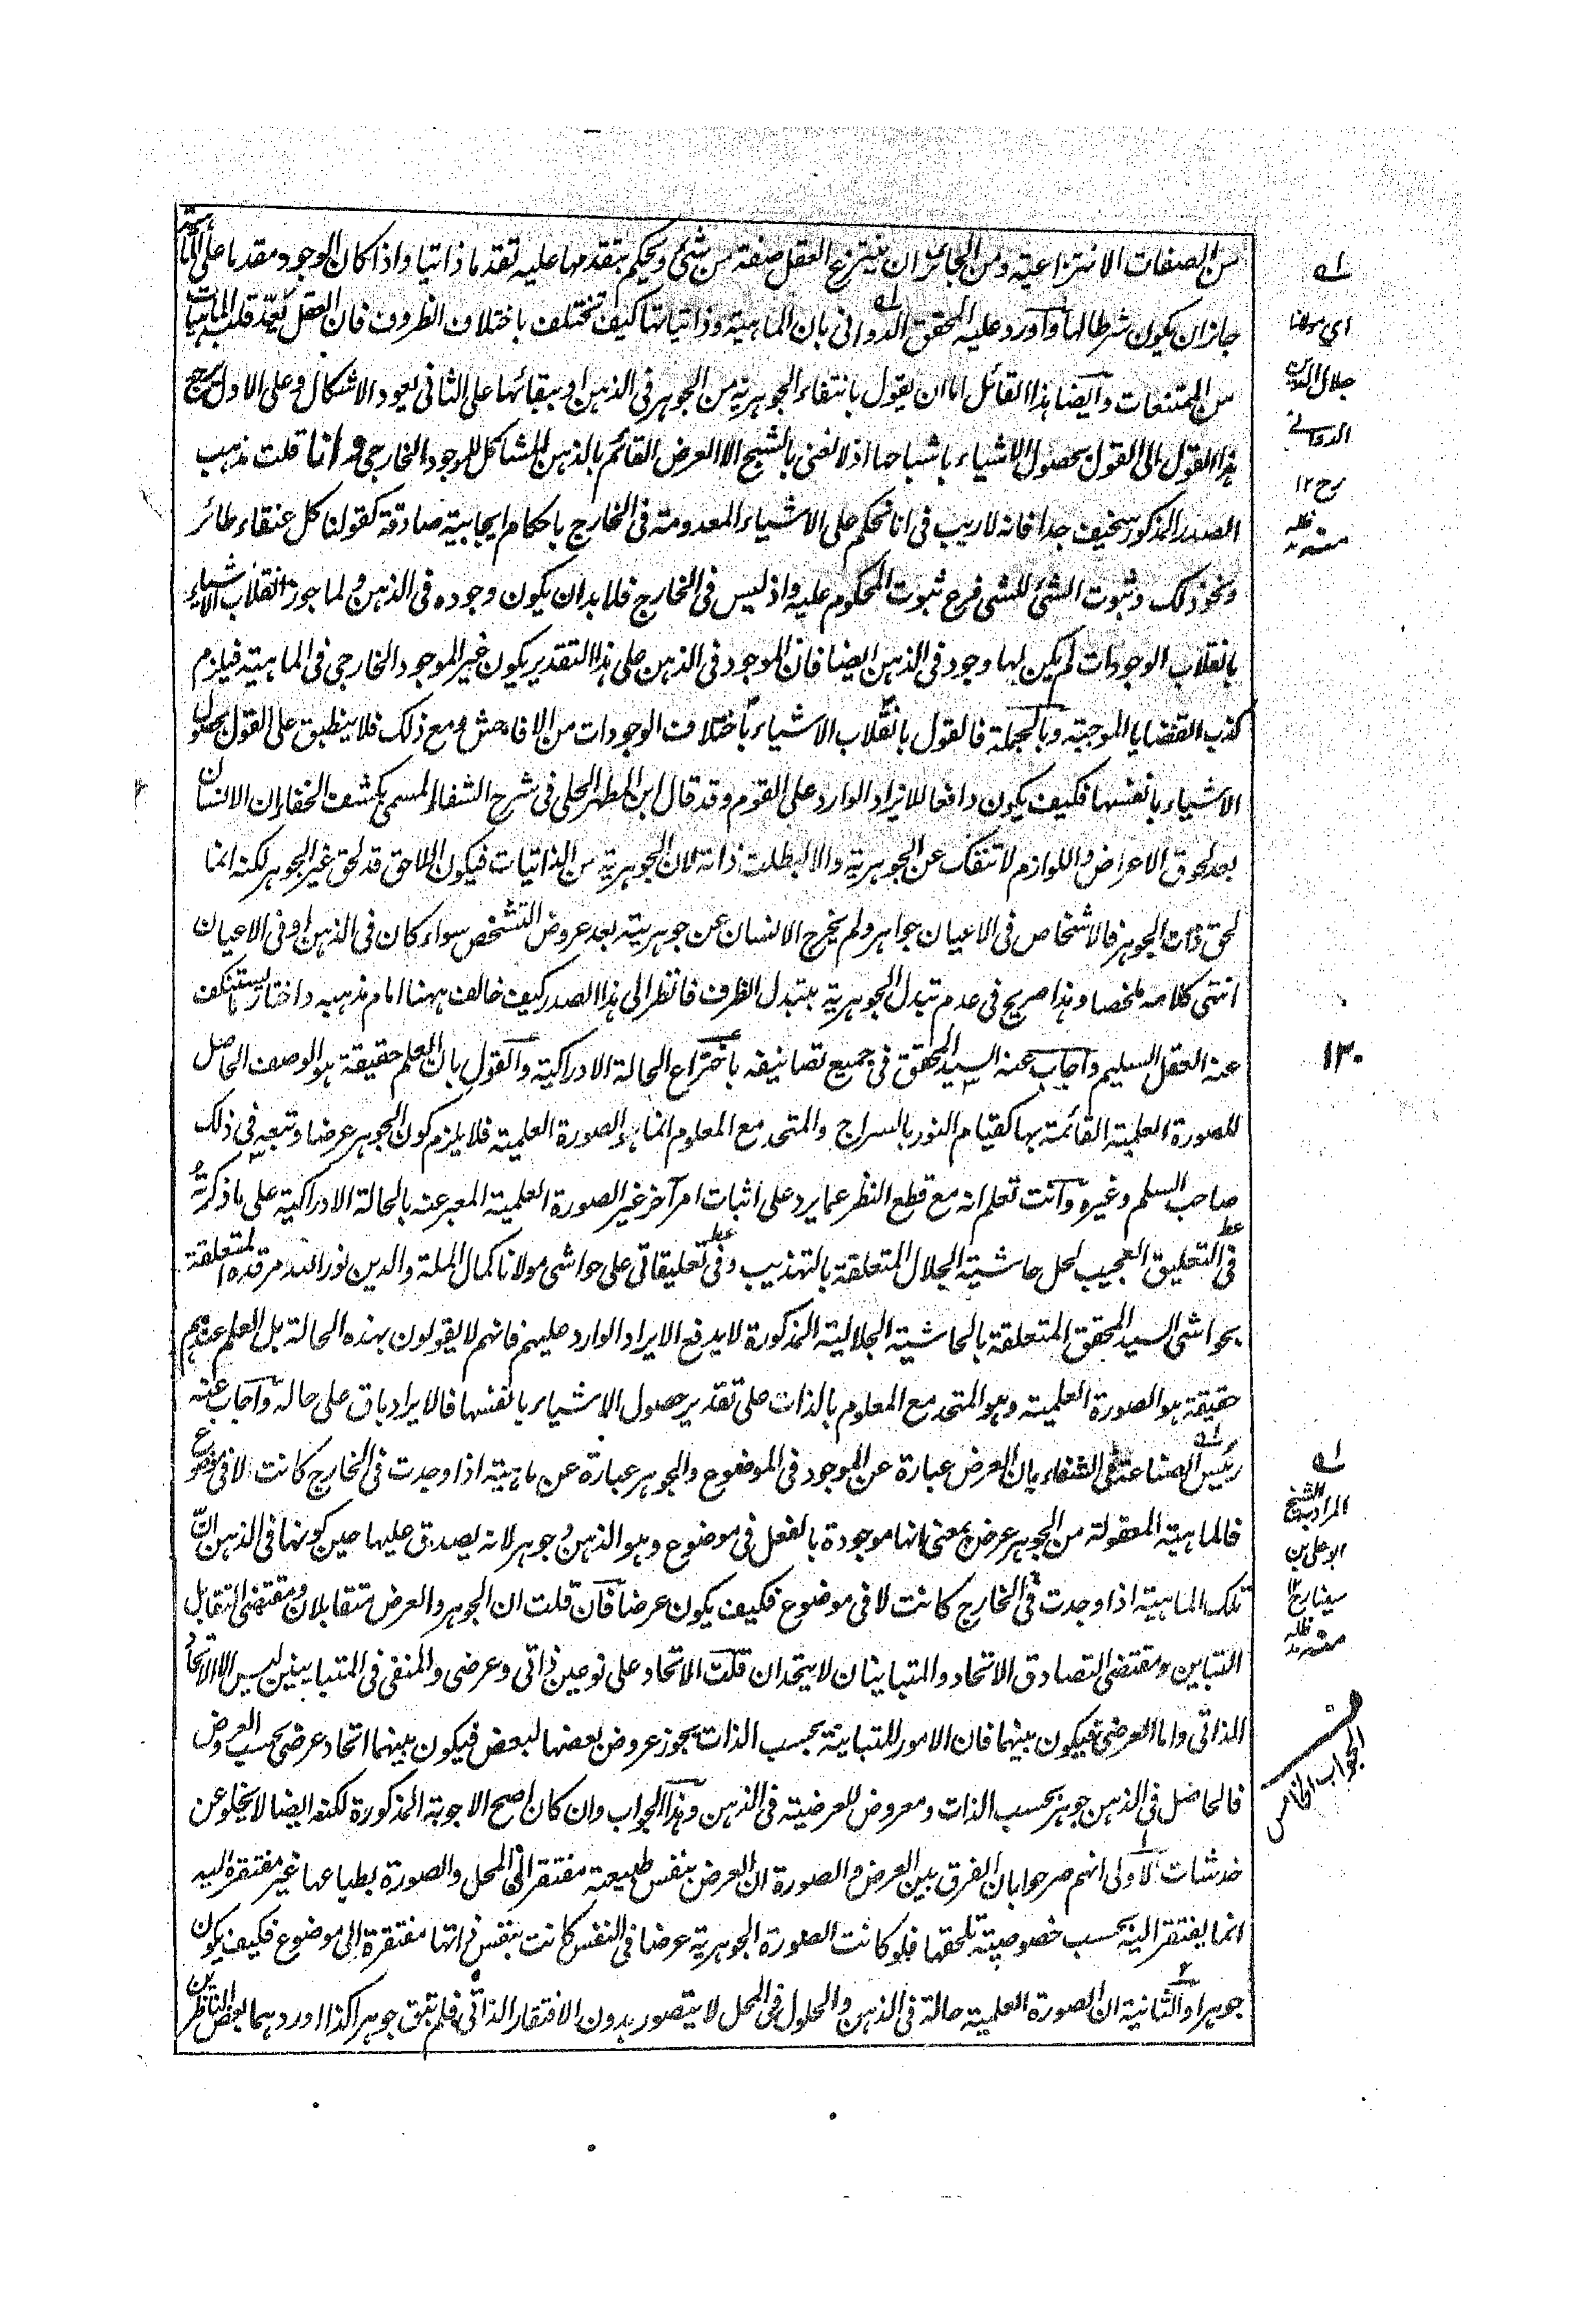 من الصفات الانتزاعية ومن الجائز ان ينتزع العقل صفة من شئ ويحكم بتقدمها عليه تقدما ذاتيا واذا كان الوجود مقدما على الماهية
جاز ان يكون شرطا لها وآورد عليه المحقق الدوانى بان الماهية وذاتياتها كيف تختلف باختلاف الظروف فان العقل يعد قلب الماهيات
من الممتنعات وآيضا هذا القائل اما ان يقول بانتفاء الجوهرية من الجوهر فى الذهن او ببقائها على الثانى يعود الاشكال وعلى الاول يرجع
هذا القول الى القول بحصول الاشياء باشباحها اذ لا نعنى بالشبح الا العرض القائم بالذهن المشاكل للموجود الخارجى وانا قلت مذهب
الصدر المذكور سخيف جدا فانه لا ريب فى انا نحكم على الاشياء المعدومة فى الخارج باحكام ايجابية صادقة كقولنا كل عنقاء طائر
ونحو ذلك وثبوت الشئ للشئ فرع ثبوت المحكوم عليه واذ ليس فى الخارج فلا بد ان يكون وجوده فى الذهن ولما جوز انقلاب الاشياء
بانقلاب الوجودات لم يكن لها وجود فى الذهن ايضا فان الموجود فى الذهن على هذا التقدير يكون غير الموجود الخارجى فى الماهية فيلزم
كذب القضايا الموجبة وبالجملة فالقول بانقلاب الاشياء باختلاف الوجودات من الافاحش ومع ذلك فلا ينطبق على القول بحصول
الاشياء بانفسها فكيف يكون دافعا للايراد الوارد على القوم وقد قال ابن المطهر الحلى فى شرح الشفاء المسمى بكشف الخفاء ان الانسان
بعد لحوق الاعراض واللوازم لا تنفك عن الجوهرية والا لبطلت ذاته لان الجوهرية من الذاتيات فيكون اللاحق قد لحق غير الجوهر لكنه انما
لحق ذات الجوهر فالاشخاص فى الاعيان جواهر ولم يخرج الانسان عن جوهريته بعد عروض التشخص سواء كان فى الذهن او فى الاعيان
انتهى كلامه ملخصا وهذا صريح فى عدم تبدل الجوهرية بتبدل الظرف فانظر الى هذا الصدر كيف خالف ههنا امام مذهبه واختار ما يستنكف
عنه العقل السليم وآجاب عنه السيد المحقق فى جميع تصانيفه باختراع الحالة الادراكية والقول بان العلم حقيقة هو الوصف الحاصل
للصورة العلمية القائمة بها كقيام النور بالسراج والمتحد مع المعلوم انما هو الصورة العلمية فلا يلزم كون الجوهر عرضا وتبعه فى ذلك
صاحب السلم وغيره وآنت تعلم انه مع قطع النظر عما يرد على اثبات امر آخر غير الصورة العلمية المعبر عنه بالحالة الادراكية على ما ذكرته
فى التعليق العجيب لحل حاشية الجلال المتعلقة بالتهذيب وفى تعليقاتى على حواشى مولانا كمال الملة والدين نور الله مرقده المتعلقة
بحواشى السيد المحقق المتعلقة بالحاشية الجلالية المذكورة لا يدفع الايراد الوارد عليهم فانهم لا يقولون بهذه الحالة بل العلم عندهم
حقيقة هو الصورة العلمية وهو المتحد مع المعلوم بالذات على تقدير حصول الاشياء بانفسها فالايراد باق على حاله وآجاب عنه
رئيس الصناعة فى الشفاء بان العرض عبارة عن الموجود فى الموضوع والجوهر عبارة عن ماهية اذا وجدت فى الخارج كانت لا فى موضوع
فالماهية المعقولة من الجوهر عرض بمعنى انها موجودة بالفعل فى موضوع وهو الذهن وجوهر لانه يصدق عليها حين كونها فى الذهن ان
تلك الماهية اذا وجدت فى الخارج كانت لا فى موضوع فكيف يكون عرضا فآن قلت ان الجوهر والعرض متقابلان ومقتضى التقابل
التباين ومقتضى التصادق الاتحاد والمتباينان لا يتحدان قلت الاتحاد على نوعين ذاتى وعرضى والمنفى فى المتباينين ليس الا الاتحاد
الذاتى واما العرضى فيكون بينهما فان الامور المتباينة بحسب الذات يجوز عروض بعضها لبعض فيكون بينهما اتحاد عرضى بحسب العروض
فالحاصل فى الذهن جوهر بحسب الذات ومعروض للعرضية فى الذهن وهذا الجواب وان كان اصح الاجوبة المذكورة لكنه ايضا لا يخلو عن
خدشات الاولى انهم صرحوا بان الفرق بين العرض والصورة ان العرض بنفس طبيعته مفتقر الى المحل والصورة بطباعها غير مفتقرة اليه
انما يفتقر اليه بحسب خصوصية تلحقها فلو كانت الصورة الجوهرية عرضا فى النفس كانت بنفس ذاتها مفتقرة الى موضوع فكيف يكون
جوهرا والثانية ان الصورة العلمية حالة فى الذهن والحلول فى المحل لا يتصور بدون الافتقار الذاتى فلم تبق جوهرا كذا اوردهما بعض الناظرين
له
اى مولانا
جلال الدين
الدوانى
رح ١٢
منه مد ظله
١٣٠
له
المراد به الشيخ
ابو على بن
سينا رح ١٢
منه مد ظله
الجواب الخامس